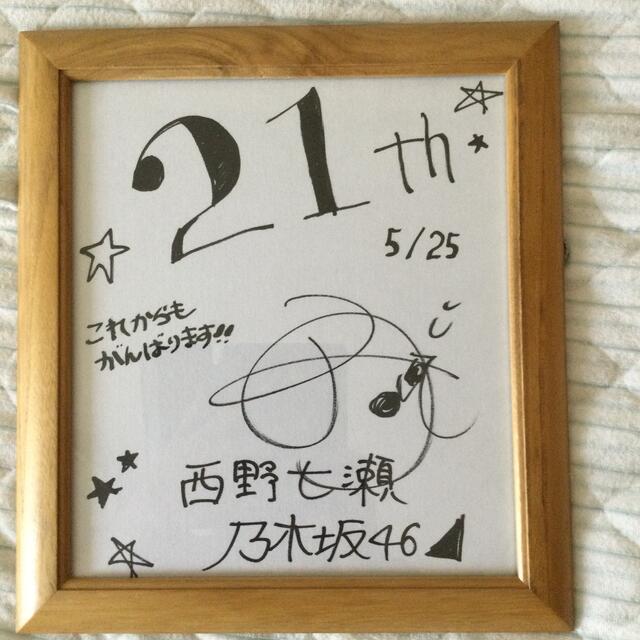 21th
5/25
これからも
がんばります!!
西野七瀬
乃木坂46